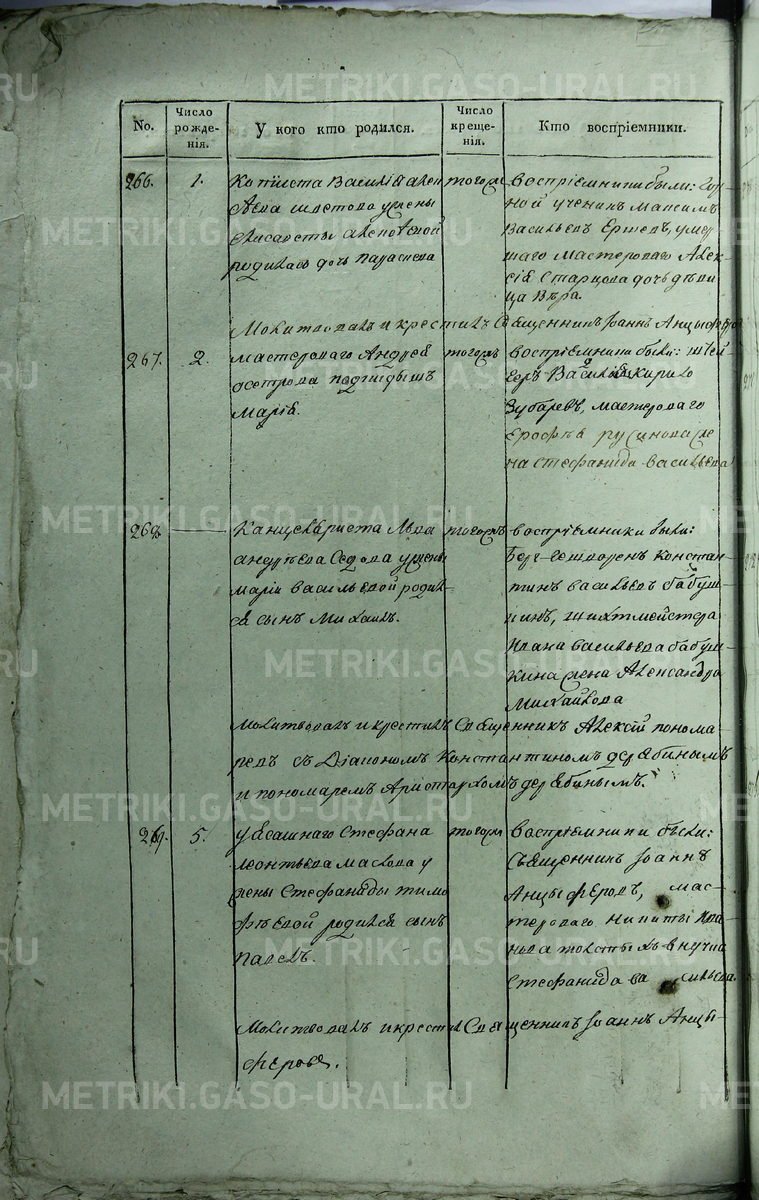 METRIKI.GASO-URAL.RU
No.
Число рожденія.
У кого кто родился.
Число крещенія.
Кто воспріемники.
266.
1.
Копїиста Василїя
шестова у жены
родилась дочь параскева
тогожъ
воспрїемники были: гор
ной ученикъ Максимъ
Васильевъ Ершовъ, умер
шаго мастероваго Алек
сѣя Старцова дочь дѣви
ца Вѣра.
Молитвовалъ и крестилъ Священникъ Іоаннъ Анцыферовъ
267.
2.
мастероваго Андрея
осетрова подкидышъ
марїя.
тогожъ
воспрїемники были:
Василїй
Зубаревъ, мастероваго
Ерофѣя русинова же
на стефанида васильева
268.
Канцеляриста Льва
андрѣева Седова у жены
марїи васильевой родил
ся сынъ Михаилъ.
тогожъ
воспрїемники были:
Берг-гешворенъ констан
тинъ васильевъ бабуш
кинъ, шихтмейстера
Ивана васильева бабуш
кина жена Александра
Михайлова
Молитвовалъ и крестилъ Священникъ Алексїй понома
ревъ съ Дїакономъ Константиномъ дерябинымъ
и пономаремъ Аристархомъ дерябинымъ.
269.
5.
Стефана
леонтьева маслова у
жены Стефаниды тимо
фѣевой родился сынъ
павелъ.
тогожъ
Воспрїемники были:
Священникъ Іоаннъ
Анцыферовъ, мас-
тероваго никиты ива
нова толстыхъ внучка
стефанида васильева.
Молитвовалъ и крестилъ Священникъ Іоаннъ Анцы
феровъ.